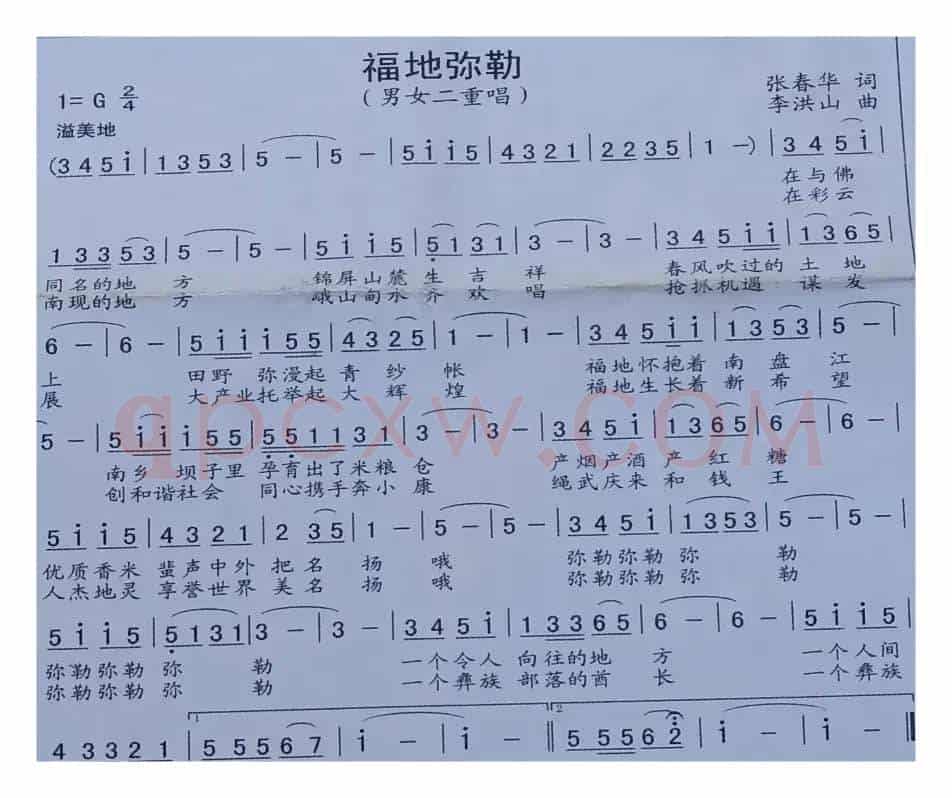 福地弥勒
(男女二重唱)
1=G 2/4
张春华 词
李洪山 曲
溢美地
(3 4 5 i | 1 3 5 3 | 5 – | 5 – | 5 i i 5 | 4 3 2 1 | 2 2 3 5 | 1 –) | 3 4 5 i |
在与佛
在彩云
1 3 3 5 3 | 5 – | 5 – | 5 i i 5 | 5 1 3 1 | 3 – | 3 – | 3 4 5 i i | 1 3 6 5 |
同名的地 方 锦屏山麓 生 吉 祥 春风吹过的 土 地
南现的地 方 峨山甸水 齐 欢 唱 抢抓机遇 谋 发
6 – | 6 – | 5 i i i 5 5 | 4 3 2 5 | 1 – | 1 – | 3 4 5 i i | 1 3 5 3 | 5 –
上 田野 弥漫起 青 纱 帐 福地怀抱着 南 盘 江
展 大产业托举起 大 辉 煌 福地生长着 新 希 望
5 – | 5 i i i 5 5 | 5 5 1 1 3 1 | 3 – | 3 – | 3 4 5 i | 1 3 6 5 | 6 – | 6 – |
南乡 坝子里 孕育出了米粮 仓 产烟产酒 产 红 糖
创和谐社会 同心携手奔小 康 绳武庆来 和 钱 王
5 i i 5 | 4 3 2 1 | 2 3 5 | 1 – | 5 – | 5 – | 3 4 5 i | 1 3 5 3 | 5 – | 5 – |
优质香米 蜚声中外 把 名 扬 哦 弥勒弥勒 弥 勒
人杰地灵 享誉世界 美 名 扬 哦 弥勒弥勒 弥 勒
5 i i 5 | 5 1 3 1 | 3 – | 3 – | 3 4 5 i | 1 3 3 6 5 | 6 – | 6 – | 5 i i 5 |
弥勒弥勒 弥 勒 一个令人 向往的地 方 一个人间
弥勒弥勒 弥 勒 一个彝族 部落的酋 长 一个彝族
4 3 3 2 1 | 1 5 5 5 6 7 | i – | i – ‖ 2 5 5 5 6 2 | i – | i – ‖
qpcxw.COM